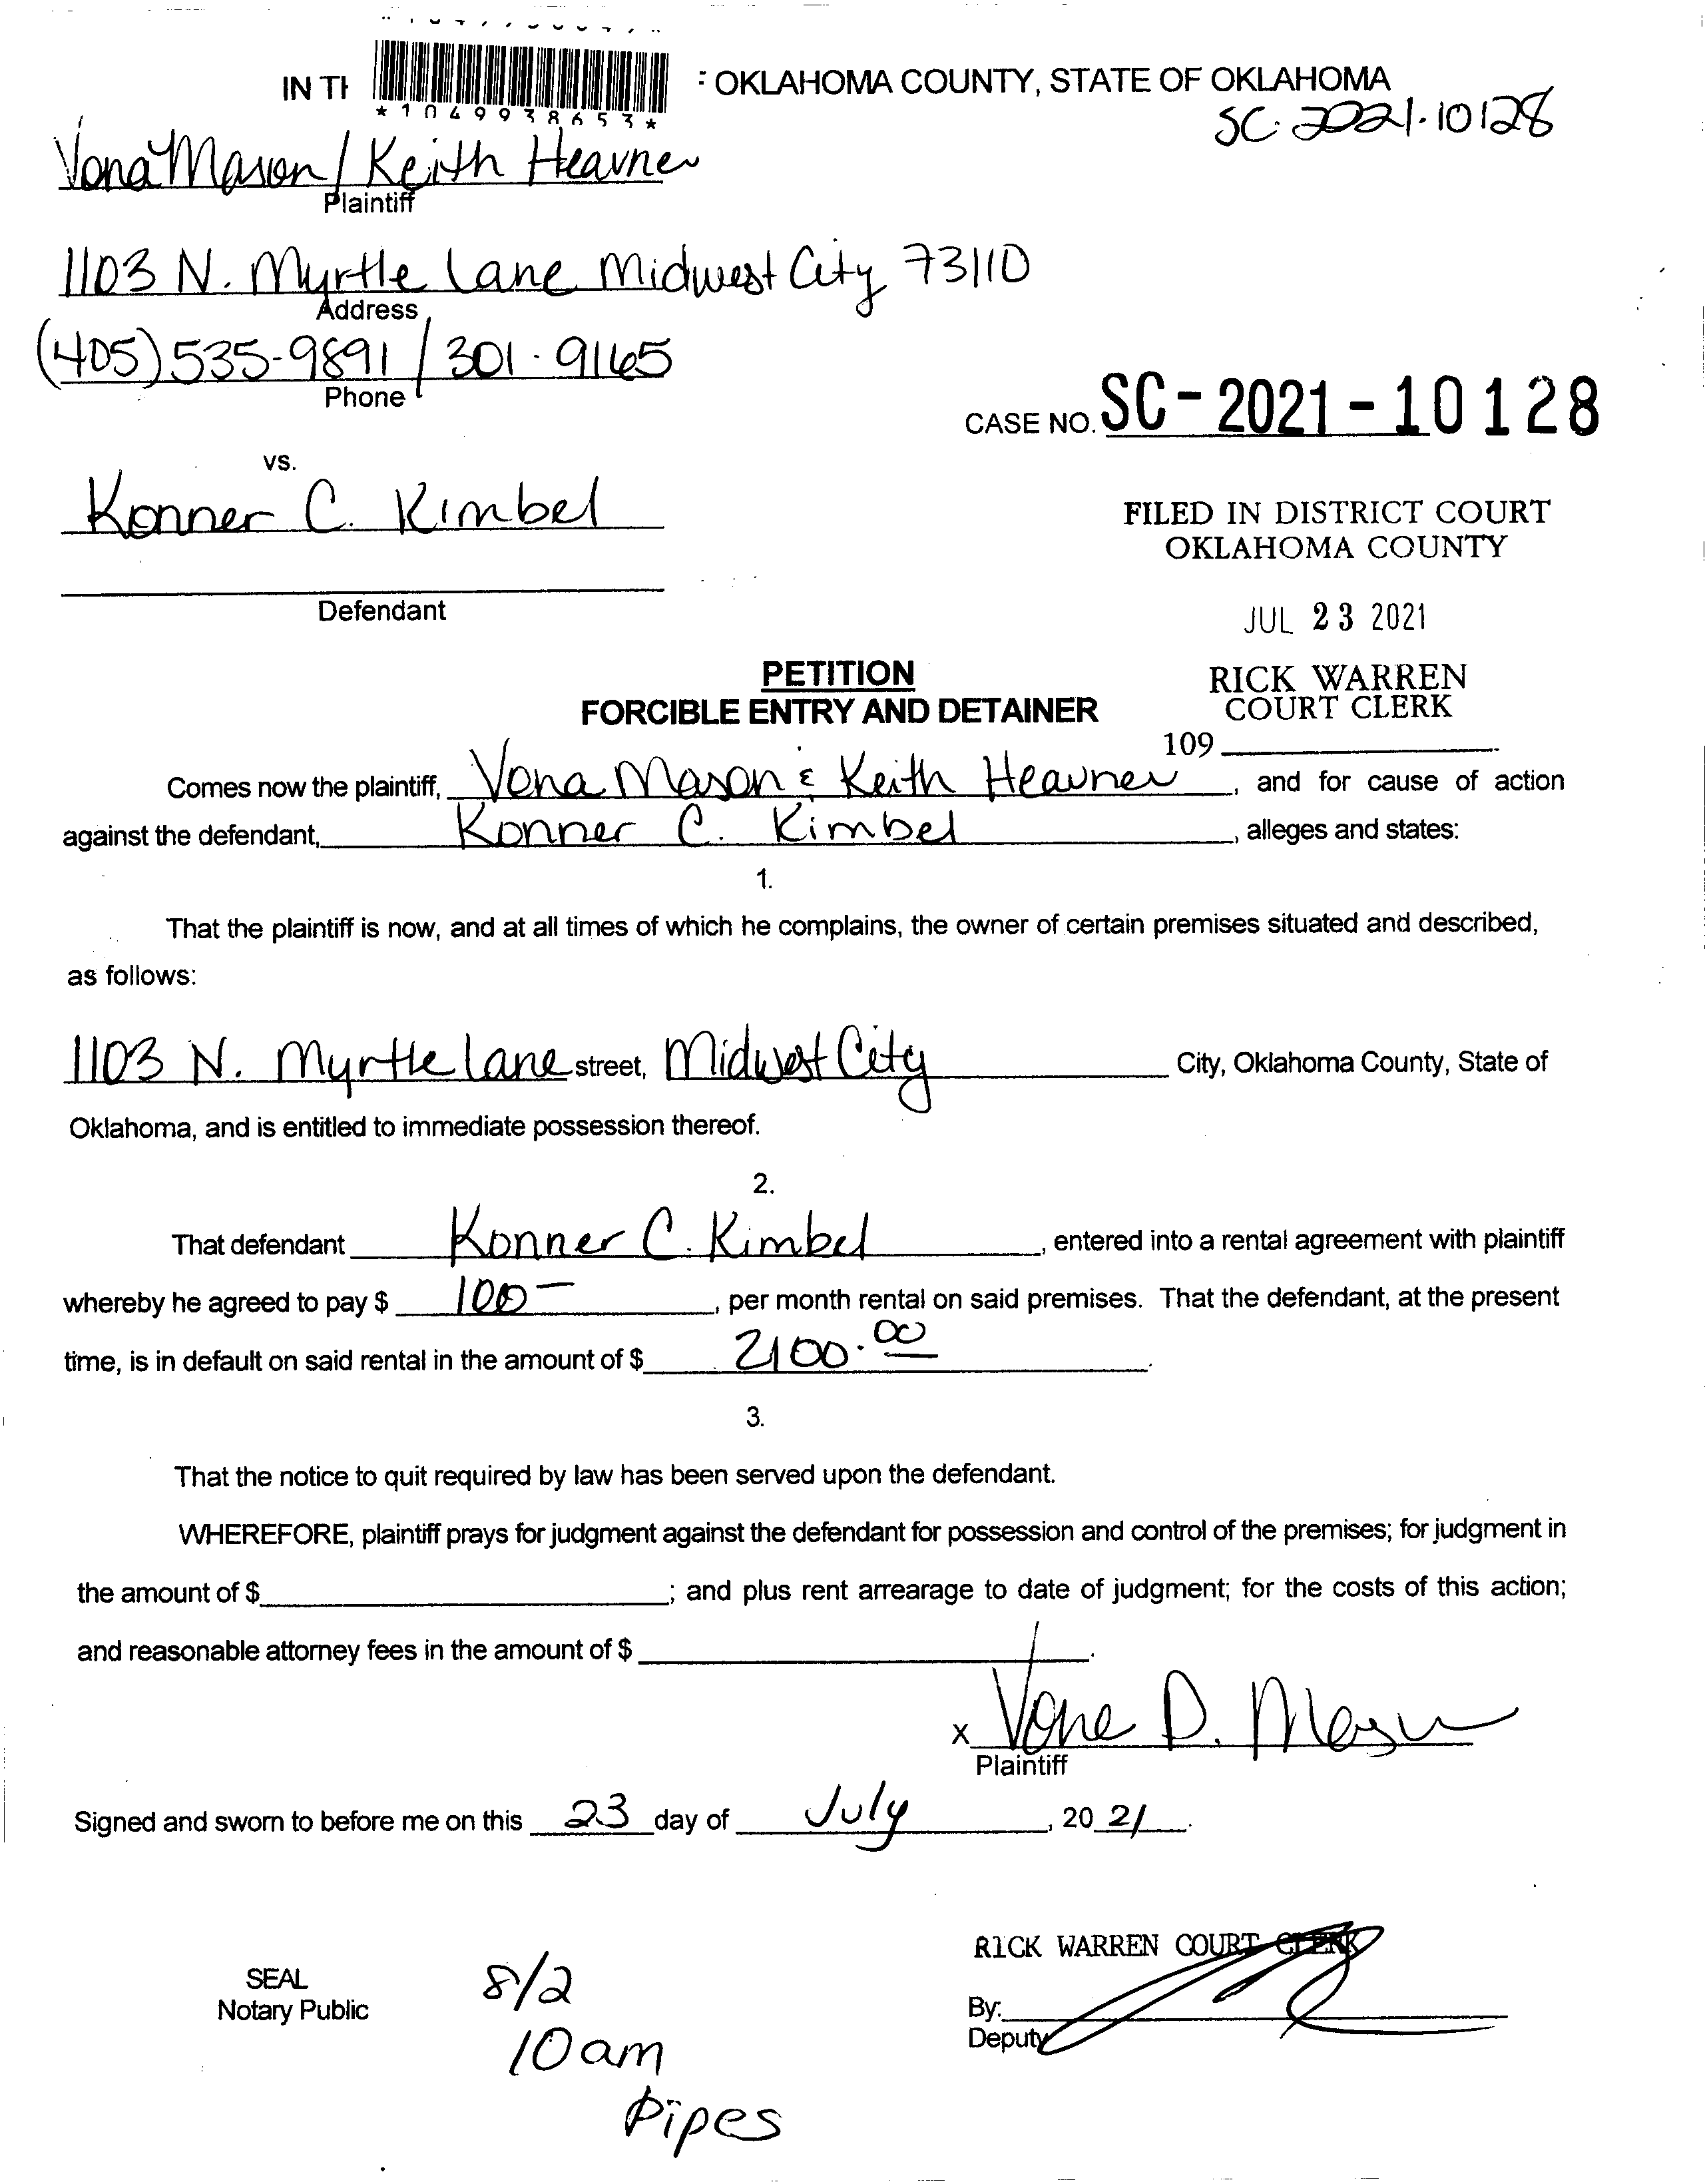 IN TH
: OKLAHOMA COUNTY, STATE OF OKLAHOMA
*1049938653*
SC. 2021.10128
Vona Mason / Keith Heavner
Plaintiff
1103 N. Myrtle Lane Midwest City 73110
Address
(405) 535-9891 / 301-9165
Phone
CASE NO. SC-2021-10128
vs.
Konner C. Kimbel
FILED IN DISTRICT COURT
OKLAHOMA COUNTY
Defendant
JUL 23 2021
PETITION
FORCIBLE ENTRY AND DETAINER
RICK WARREN
COURT CLERK
109
Comes now the plaintiff, Vona Mason & Keith Heavner, and for cause of action
against the defendant, Konner C. Kimbel, alleges and states:
1.
That the plaintiff is now, and at all times of which he complains, the owner of certain premises situated and described,
as follows:
1103 N. Myrtle Lane street, Midwest City City, Oklahoma County, State of
Oklahoma, and is entitled to immediate possession thereof.
2.
That defendant Konner C. Kimbel, entered into a rental agreement with plaintiff
whereby he agreed to pay $ 100-, per month rental on said premises. That the defendant, at the present
time, is in default on said rental in the amount of $ 2100.00.
3.
That the notice to quit required by law has been served upon the defendant.
WHEREFORE, plaintiff prays for judgment against the defendant for possession and control of the premises; for judgment in
the amount of $; and plus rent arrearage to date of judgment; for the costs of this action;
and reasonable attorney fees in the amount of $.
x Vona D. Mason
Plaintiff
Signed and sworn to before me on this 23 day of July, 2021.
RICK WARREN COURT CLERK
SEAL
Notary Public
8/2
10am
Pipes
By:
Deputy